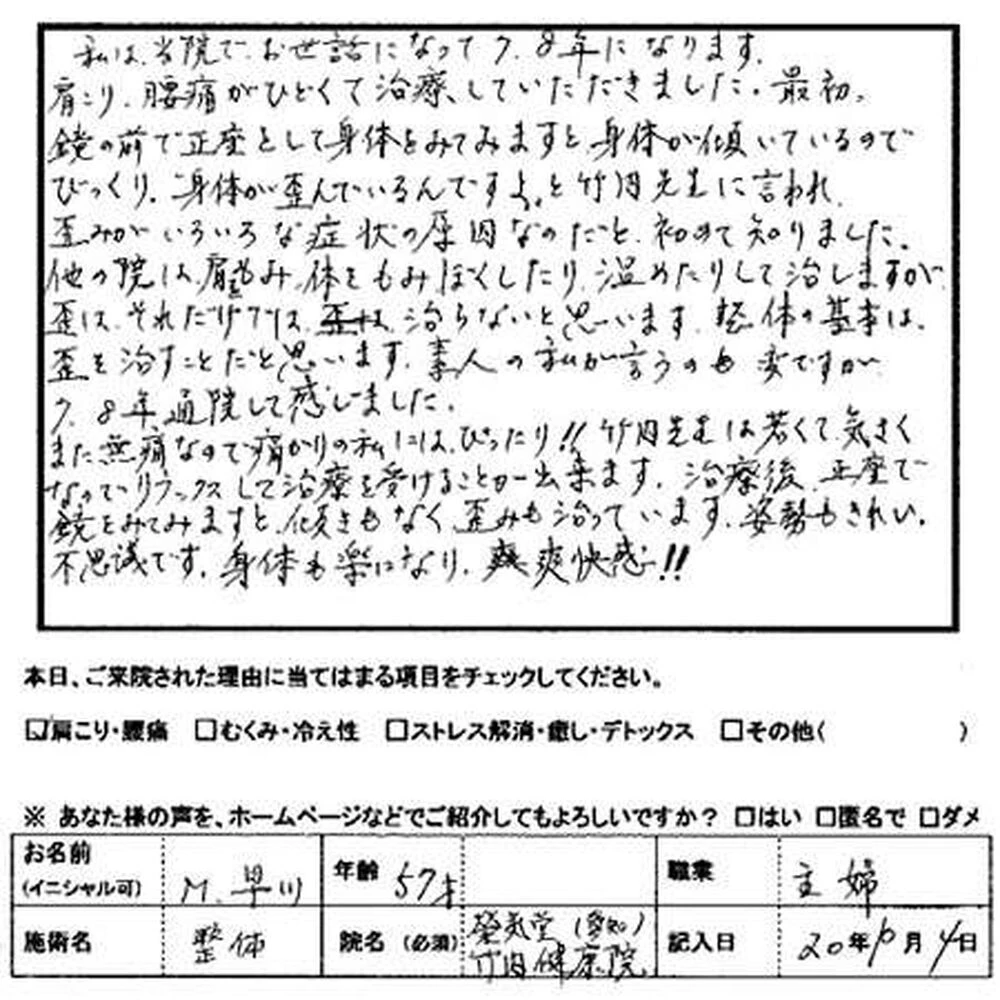 私は、当院で、お世話になって7、8年になります。
肩こり、腰痛がひどくて治療、していただきました。最初、
鏡の前で正座をして身体をみてみますと、身体が傾いているので
びっくり、身体が歪んでいるんですよ。と竹内先生に言われ、
歪みがいろいろな症状の原因なのだと、初めて知りました。
他の院は、肩もみ、体をもみほぐしたり、温めたりして治しますが
歪は、それだけでは、治らないと思います。整体の基本は、
歪を治すことだと思います。素人の私が言うのも変ですが
7、8年、通院して感じました。
また無痛なので痛がりの私には、ぴったり!!竹内先生は若くて、気さく
なので、リラックスして治療を受けることが出来ます。治療後、正座で
鏡をみてみますと、傾きもなく歪みも治っています。姿勢もきれい。
不思議です。身体も楽になり、爽快感!!
本日、ご来院された理由に当てはまる項目をチェックしてください。
☑肩こり・腰痛 □むくみ・冷え性 □ストレス解消・癒し・デトックス □その他( )
※ あなた様の声を、ホームページなどでご紹介してもよろしいですか? □はい □匿名で □ダメ
お名前 (イニシャル可) M.早川 年齢 57才 職業 主婦
施術名 整体 院名 (必須) 気堂(愛知) 竹内健康院 記入日 20年10月4日